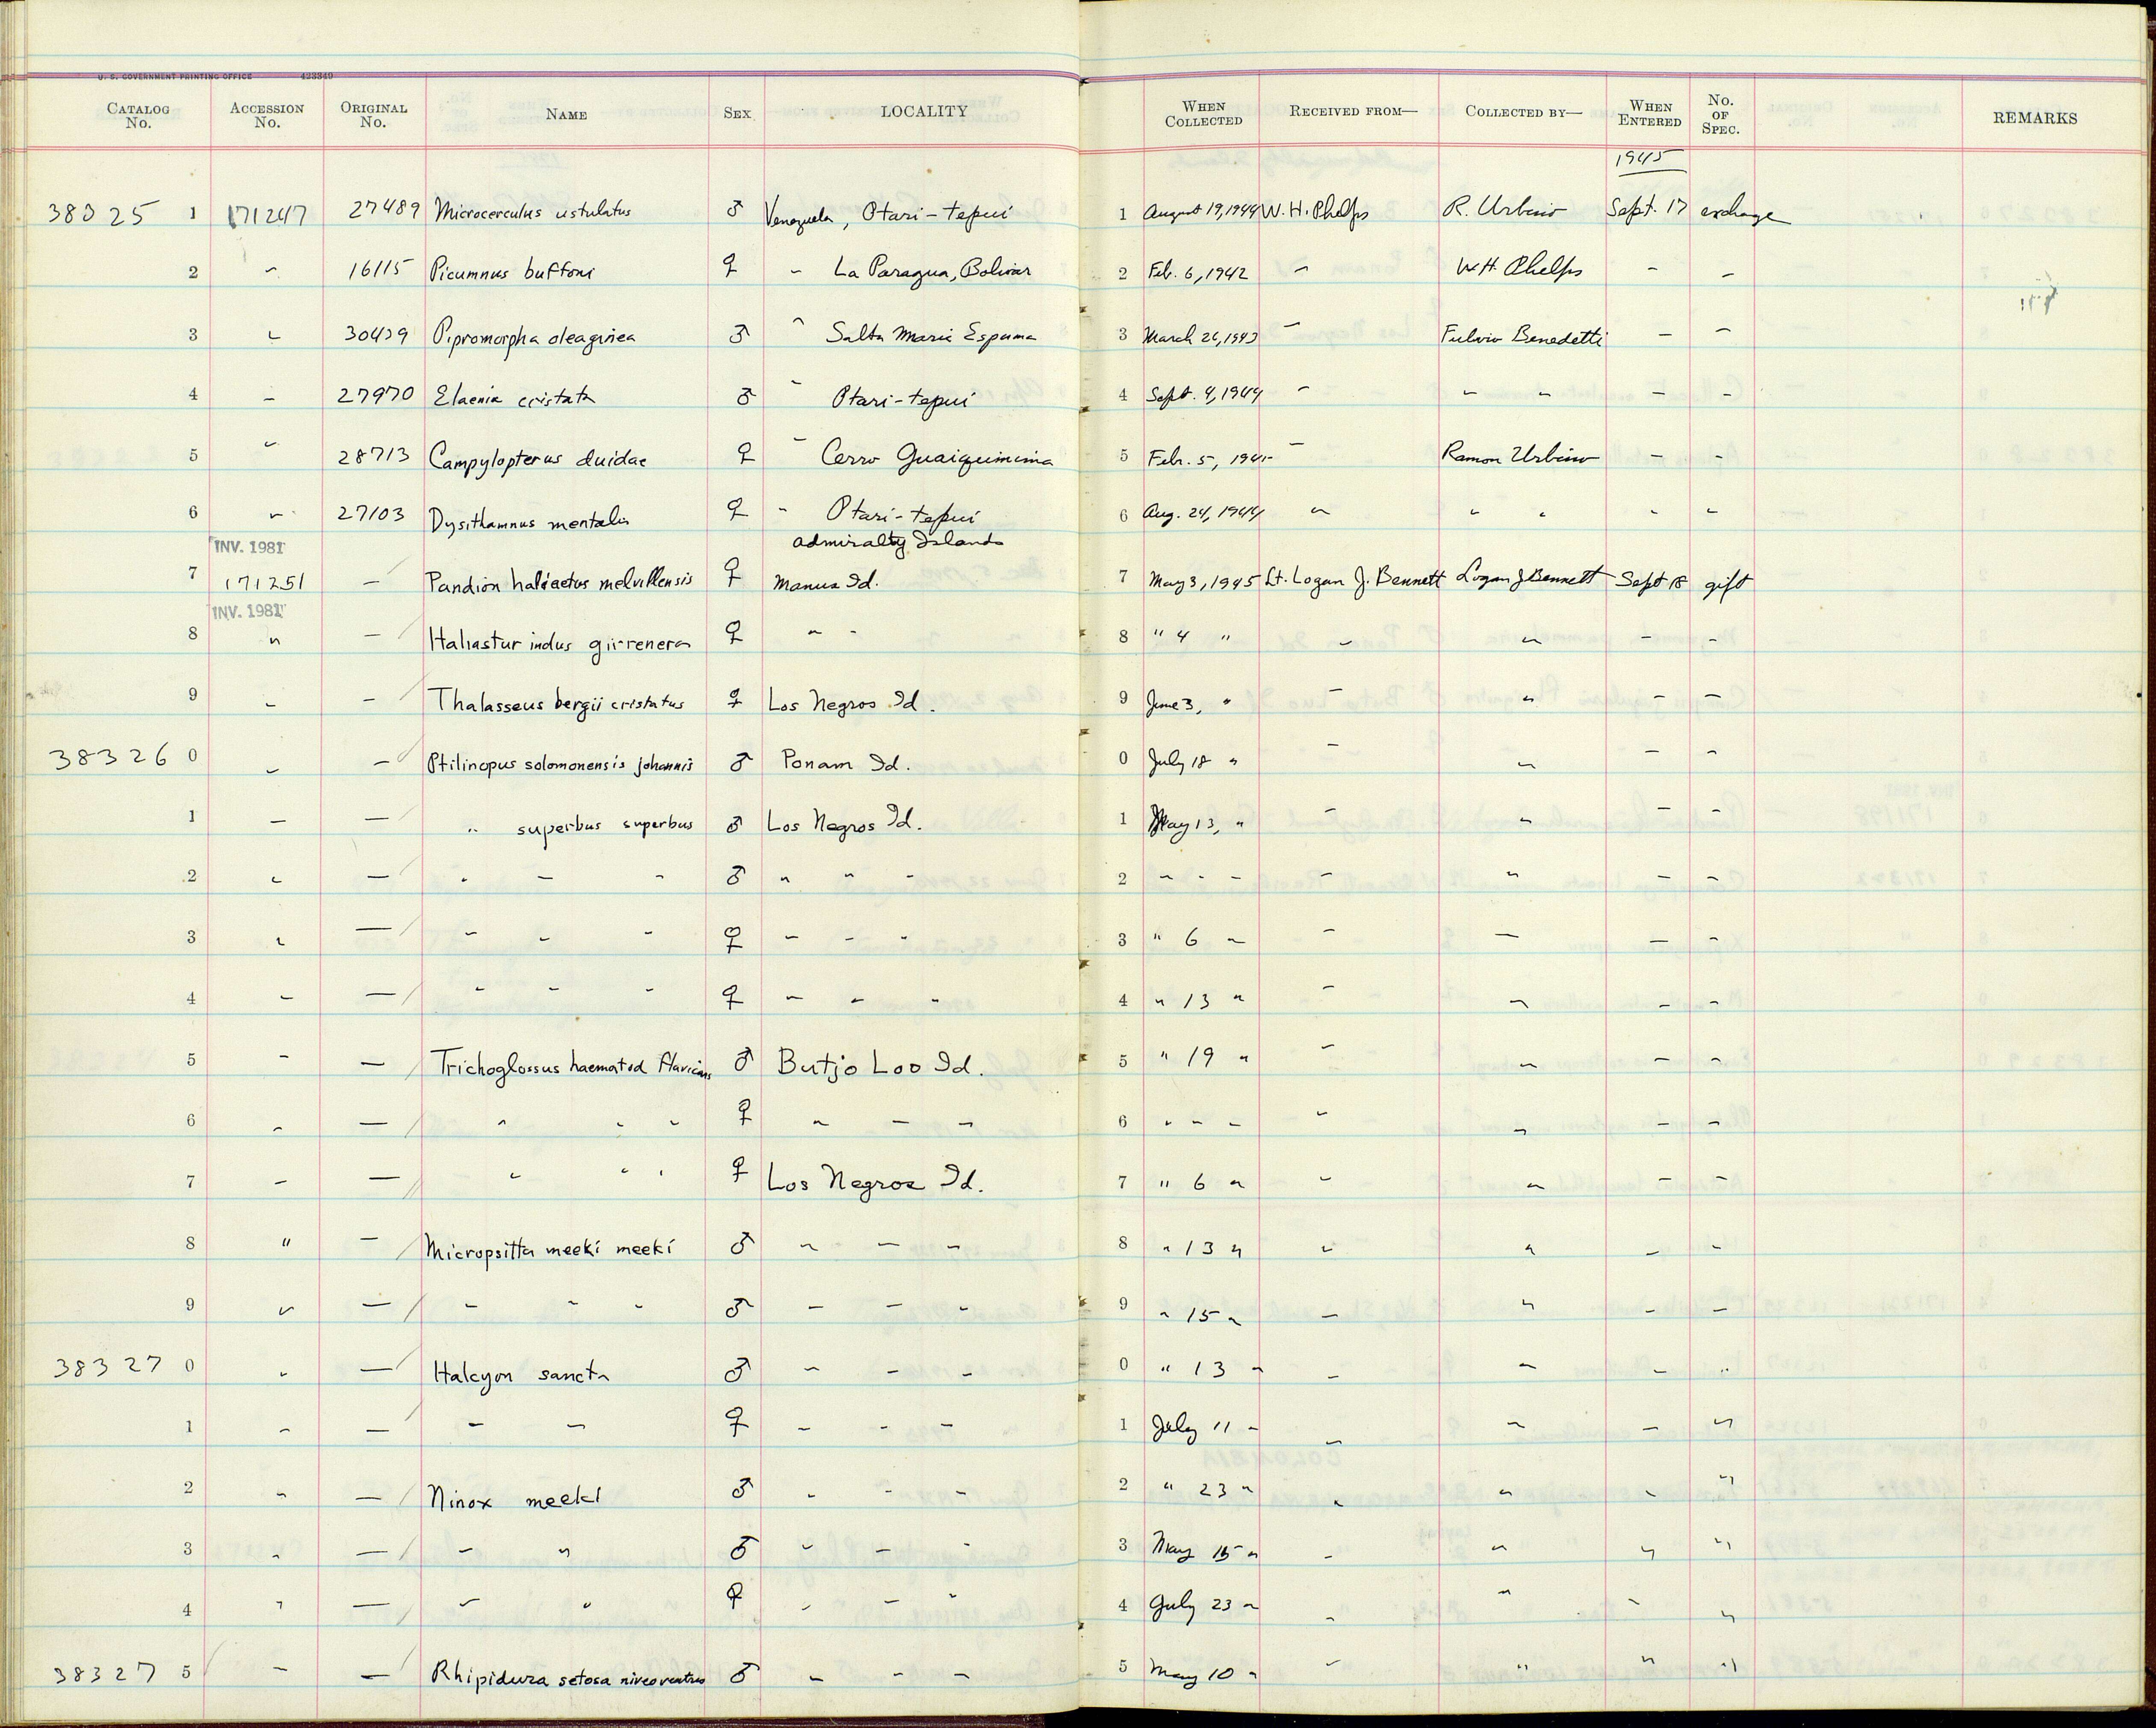 U. S. GOVERNMENT PRINTING OFFICE 423349
CATALOG No. ACCESSION No. ORIGINAL No. NAME SEX LOCALITY WHEN COLLECTED RECEIVED FROM— COLLECTED BY— WHEN ENTERED No. OF SPEC. REMARKS
1945
38325 1 171247 27489 Microcerculus ustulatus ♂ Venezuela, Ptari-tepui 1 August 19, 1944 W. H. Phelps R. Urbino Sept. 17 exchange
2 " 16115 Picumnus buffoni ♀ " La Paragua, Bolivar 2 Feb. 6, 1942 " W.H. Phelps " "
3 " 30439 Pipromorpha oleaginea ♂ " Salto Maria Espuma 3 March 26, 1943 " Fulvio Benedetti " "
4 " 27970 Elaenia cristata ♂ " Ptari-tepui 4 Sept. 4, 1944 " " " " "
5 " 28713 Campylopterus duidae ♀ " Cerro Guaiquinima 5 Feb. 5, 1945 " Ramon Urbino " "
6 " 27103 Dysithamnus mentalis ♀ " Ptari-tepui 6 Aug. 24, 1944 " " " " "
INV. 1981 Admiralty Islands
7 171251 — Pandion haliaetus melvillensis ♀ Manus Id. 7 May 3, 1945 Lt. Logan J. Bennett Logan J Bennett Sept 18 gift
INV. 1981
8 " — Haliastur indus girrenera ♀ " " 8 " 4 " " " " "
9 " — Thalasseus bergii cristatus ♀ Los Negros Id. 9 June 3, " " " " "
38326 0 " — Ptilinopus solomonensis johannis ♂ Ponam Id. 0 July 18 " " " " "
1 " — " superbus superbus ♂ Los Negros Id. 1 May 13, " " " " "
2 " — " " " ♂ " " " 2 " " " " " " "
3 " — " " " ♀ " " " 3 " 6 " " " " "
4 " — " " " ♀ " " " 4 " 13 " " " " "
5 " — Trichoglossus haematod flavicans ♂ Butjo Loo Id. 5 " 19 " " " " "
6 " — " " " ♀ " " " 6 " " " " " " "
7 " — " " " ♀ Los Negros Id. 7 " 6 " " " " "
8 " — Micropsitta meeki meeki ♂ " " " 8 " 13 " " " " "
9 " — " " " ♂ " " " 9 " 15 " " " " "
38327 0 " — Halcyon sancta ♂ " " " 0 " 13 " " " " "
1 " — " " ♀ " " " 1 July 11 " " " " "
2 " — Ninox meeki ♂ " " " 2 " 23 " " " " "
3 " — " " ♂ " " " 3 May 15 " " " " "
4 " — " " ♀ " " " 4 July 23 " " " " "
38327 5 " — Rhipidura setosa niveoventris ♂ " " " 5 May 10 " " " " "